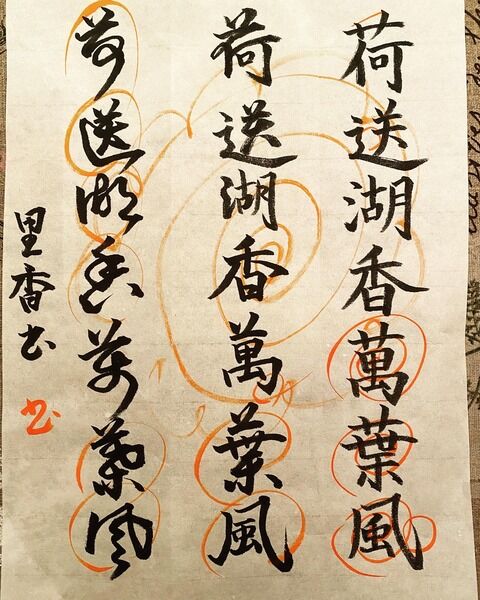 荷送湖香萬葉風
荷送湖香萬葉風
荷送湖香萬葉風
里香书